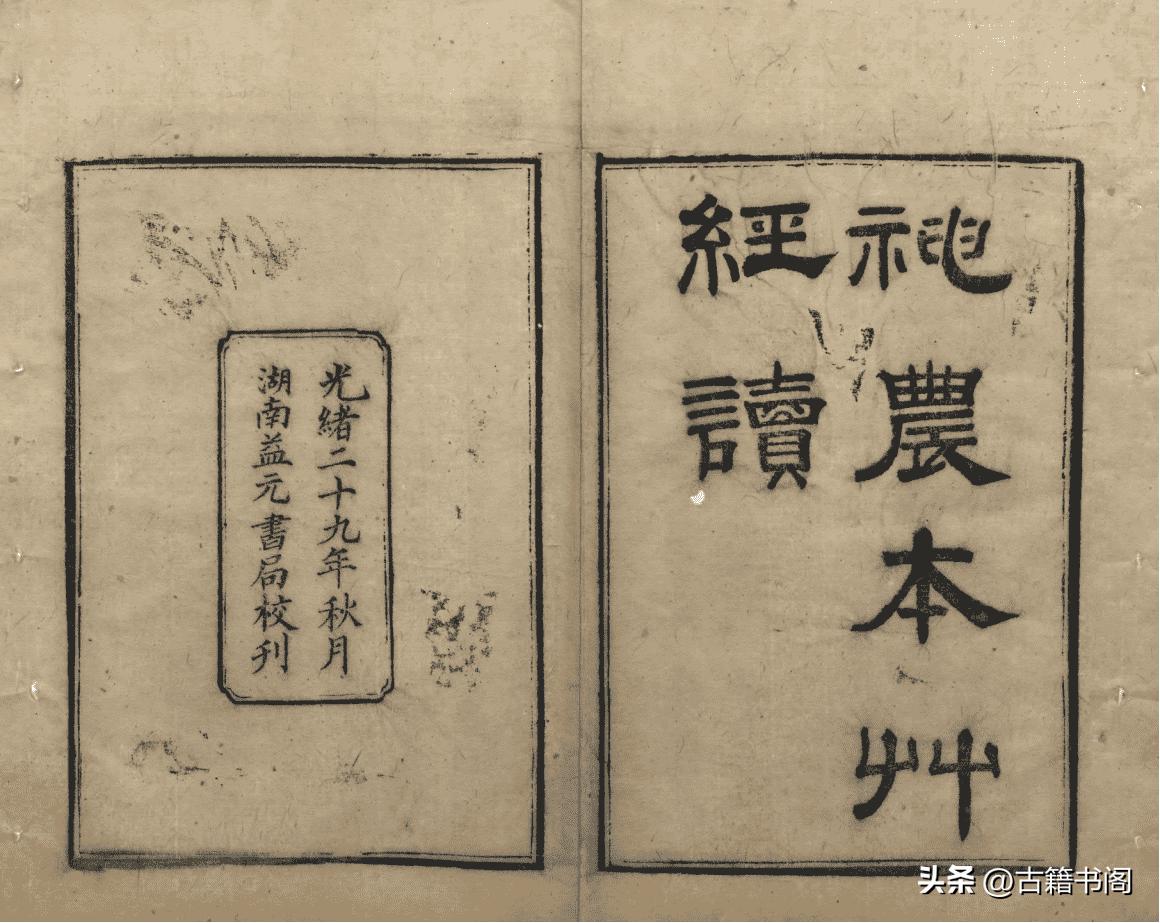 神農本艸
經讀
光緒二十九年秋月
湖南益元書局校刊
头条 @古籍书阁